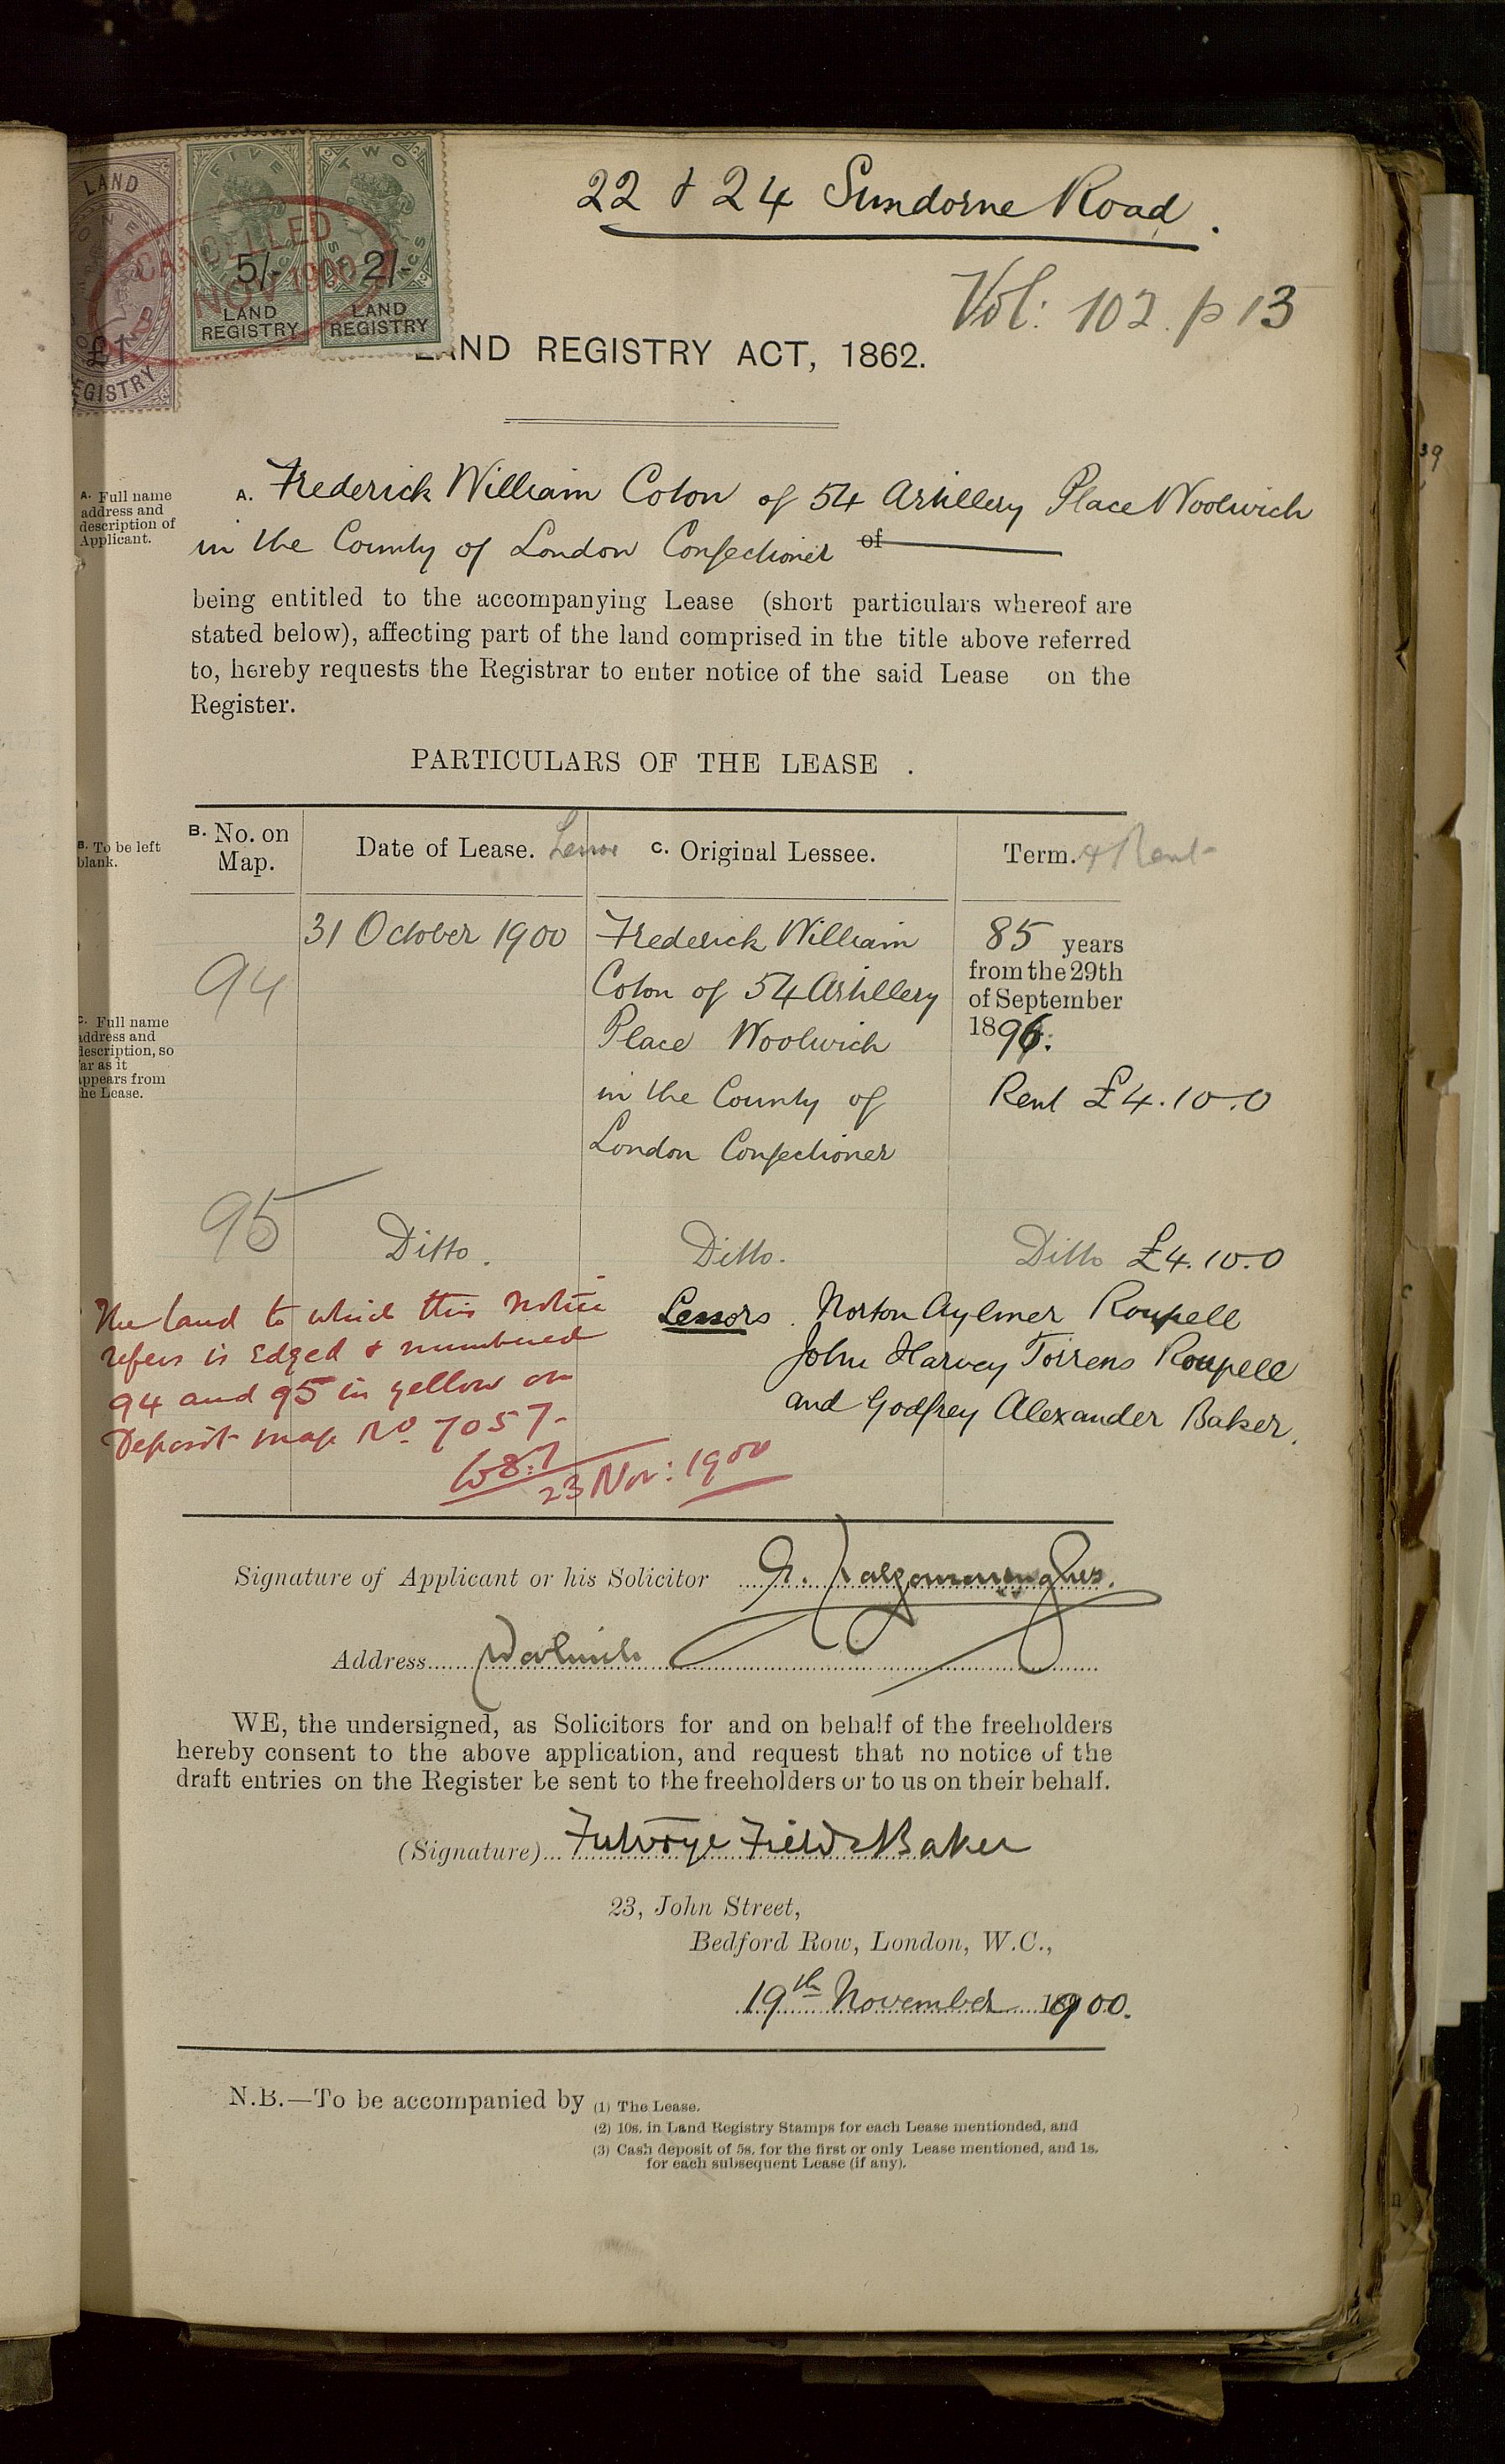 22 & 24 Sundorne Road.
Vol: 102. p 13
LAND
£1
REGISTRY
FIVE
5/-
LAND
REGISTRY
TWO
2/-
LAND
REGISTRY
CANCELLED
NOV 1900
LAND REGISTRY ACT, 1862.
A. Full name
address and
description of
Applicant.
A. Frederick William Coton of 54 Artillery Place Woolwich
in the County of London Confectioner of
being entitled to the accompanying Lease (short particulars whereof are
stated below), affecting part of the land comprised in the title above referred
to, hereby requests the Registrar to enter notice of the said Lease on the
Register.
PARTICULARS OF THE LEASE .
B. To be left
blank.
B. No. on
Map.
Date of Lease. Lessor
C. Original Lessee.
Term. & Rent
C. Full name
address and
description, so
far as it
appears from
the Lease.
94
31 October 1900
Frederick William
Coton of 54 Artillery
Place Woolwich
in the County of
London Confectioner
85 years
from the 29th
of September
1896.
Rent £4.10.0
95
Ditto.
Ditto.
Ditto £4.10.0
The land to which this Notice
refers is Edged & numbered
94 and 95 in yellow on
Deposit map No 7057-
23 Nov: 1900
Lessors. Norton Aylmer Roupell
John Harvey Torrens Roupell
and Godfrey Alexander Baker.
Signature of Applicant or his Solicitor
Address Woolwich
WE, the undersigned, as Solicitors for and on behalf of the freeholders
hereby consent to the above application, and request that no notice of the
draft entries on the Register be sent to the freeholders or to us on their behalf.
(Signature) Field Baker
23, John Street,
Bedford Row, London, W.C.,
19th November 1900.
N.B.—To be accompanied by (1) The Lease.
(2) 10s. in Land Registry Stamps for each Lease mentionded, and
(3) Cash deposit of 5s. for the first or only Lease mentioned, and 1s.
for each subsequent Lease (if any).
39